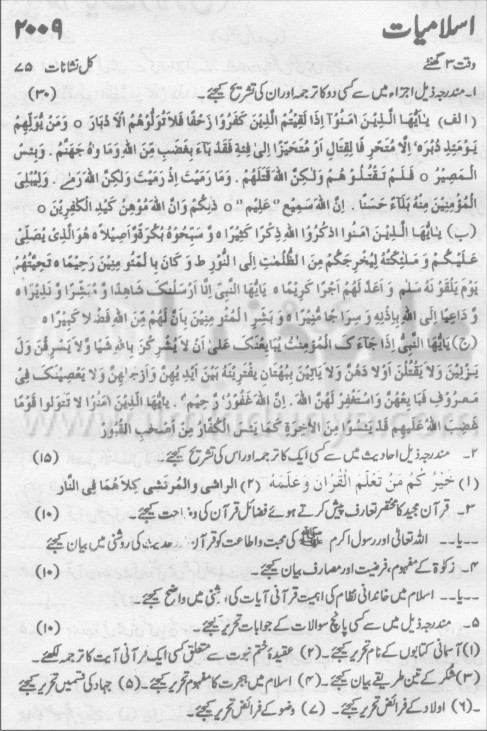 اسلامیات ۲۰۰۹
وقت ۳ گھنٹے کل نشانات ۷۵
۱۔ مندرجہ ذیل اجزاء میں سے کسی دو کا ترجمہ اور ان کی تشریح کیجئے۔ (۳۰)
(الف) یٰایُّھَا الَّذِیْنَ اٰمَنُوْآ اِذَا لَقِیْتُمُ الَّذِیْنَ کَفَرُوْا زَحْفًا فَلَا تُوَلُّوْھُمُ الْاَدْبَارَ ○ وَمَنْ یُّوَلِّھِمْ
یَوْمَئِذٍ دُبُرَہٗ اِلَّا مُتَحَرِّ فًا لِقِتَالٍ اَوْ مُتَحَیِّزًا اِلٰی فِئَۃٍ فَقَدْ بَآءَ بِغَضَبٍ مِّنَ اللّٰہِ وَمَاوٰہُ جَھَنَّمُ ۔ وَبِئْسَ
الْمَصِیْرُ ○ فَلَمْ تَقْتُلُوْھُمْ وَلٰکِنَّ اللّٰہَ قَتَلَھُمْ ۔ وَمَا رَمَیْتَ اِذْ رَمَیْتَ وَلٰکِنَّ اللّٰہَ رَمٰی ۔ وَلِیُبْلِیَ
الْمُؤْمِنِیْنَ مِنْہُ بَلَآءً حَسَنًا ۔ اِنَّ اللّٰہَ سَمِیْعٌ عَلِیْمٌ ○ ذٰلِکُمْ وَاَنَّ اللّٰہَ مُوْھِنُ کَیْدِ الْکٰفِرِیْنَ ○
(ب) یٰایُّھَا الَّذِیْنَ اٰمَنُوا اذْکُرُوا اللّٰہَ ذِکْرًا کَثِیْرًا ہ وَّ سَبِّحُوْہُ بُکْرَۃً وَّاَصِیْلًا ہ ھُوَ الَّذِیْ یُصَلِّیْ
عَلَیْکُمْ وَ مَلٰئِکَتُہٗ لِیُخْرِجَکُمْ مِّنَ الظُّلُمٰتِ اِلَی النُّوْرِ ط وَ کَانَ بِالْمُؤْمِنِیْنَ رَحِیْمًا ہ تَحِیَّتُھُمْ
یَوْمَ یَلْقَوْنَہٗ سَلٰمٌ ۔ وَ اَعَدَّ لَھُمْ اَجْرًا کَرِیْمًا ہ یٰاَیُّھَا النَّبِیُّ اِنَّا اَرْسَلْنٰکَ شَاھِدًا وَّ مُبَشِّرًا وَّ نَذِیْرًا ہ
وَّ دَاعِیًا اِلَی اللّٰہِ بِاِذْنِہٖ وَ سِرَاجًا مُّنِیْرًا ہ وَ بَشِّرِ الْمُؤْمِنِیْنَ بِاَنَّ لَھُمْ مِّنَ اللّٰہِ فَضْلًا کَبِیْرًا ہ
(ج) یٰاَیُّھَا النَّبِیُّ اِذَا جَآءَکَ الْمُؤْمِنٰتُ یُبَایِعْنَکَ عَلٰی اَنْ لَّا یُشْرِکْنَ بِاللّٰہِ شَیْئًا وَّلَا یَسْرِقْنَ وَلَا
یَزْنِیْنَ وَلَا یَقْتُلْنَ اَوْلَادَھُنَّ وَلَا یَاْتِیْنَ بِبُھْتَانٍ یَّفْتَرِیْنَہٗ بَیْنَ اَیْدِیْھِنَّ وَاَرْجُلِھِنَّ وَلَا یَعْصِیْنَکَ فِیْ
مَعْرُوْفٍ فَبَایِعْھُنَّ وَاسْتَغْفِرْ لَھُنَّ اللّٰہَ ۔ اِنَّ اللّٰہَ غَفُوْرٌ رَّحِیْمٌ ۔ یٰاَیُّھَا الَّذِیْنَ اٰمَنُوْا لَا تَتَوَلَّوْا قَوْمًا
غَضِبَ اللّٰہُ عَلَیْھِمْ قَدْ یَئِسُوْا مِنَ الْاٰخِرَۃِ کَمَا یَئِسَ الْکُفَّارُ مِنْ اَصْحٰبِ الْقُبُوْرِ
۲۔ مندرجہ ذیل احادیث میں سے کسی ایک کا ترجمہ اور اس کی تشریح کیجئے۔ (۱۵)
(۱) خَیْرُ کُمْ مَنْ تَعَلَّمَ الْقُرْاٰنَ وَ عَلَّمَہٗ (۲) الراشی والمُرتشی کِلَاھُمَا فِی النَّار
۳۔ قرآن مجید کا مختصر تعارف پیش کرتے ہوئے فضائل قرآن کی وضاحت کیجئے۔ (۱۰)
۔۔یا۔۔ اللہ تعالیٰ اور رسول اکرم ﷺ کی محبت و اطاعت کو قرآن اور حدیث کی روشنی میں بیان کیجئے
۴۔ زکوٰۃ کے مفہوم، فرضیت اور مصارف بیان کیجئے۔ (۱۰)
۔۔یا۔۔ اسلام میں خاندانی نظام کی اہمیت قرآنی آیات کی روشنی میں واضح کیجئے۔
۵۔ مندرجہ ذیل میں سے کسی پانچ سوالات کے جوابات تحریر کیجئے۔ (۱۰)
(۱) آسمانی کتابوں کے نام تحریر کیجئے۔ (۲) عقیدۂ ختم نبوت سے متعلق کسی ایک قرآنی آیت کا ترجمہ لکھئے۔
(۳) شکر کے تین طریقے بیان کیجئے۔ (۴) اسلام میں ہجرت کا مفہوم تحریر کیجئے۔ (۵) جہاد کی قسمیں تحریر کیجئے
۔(۶) اولاد کے فرائض تحریر کیجئے۔ (۷) وضو کے فرائض تحریر کیجئے۔